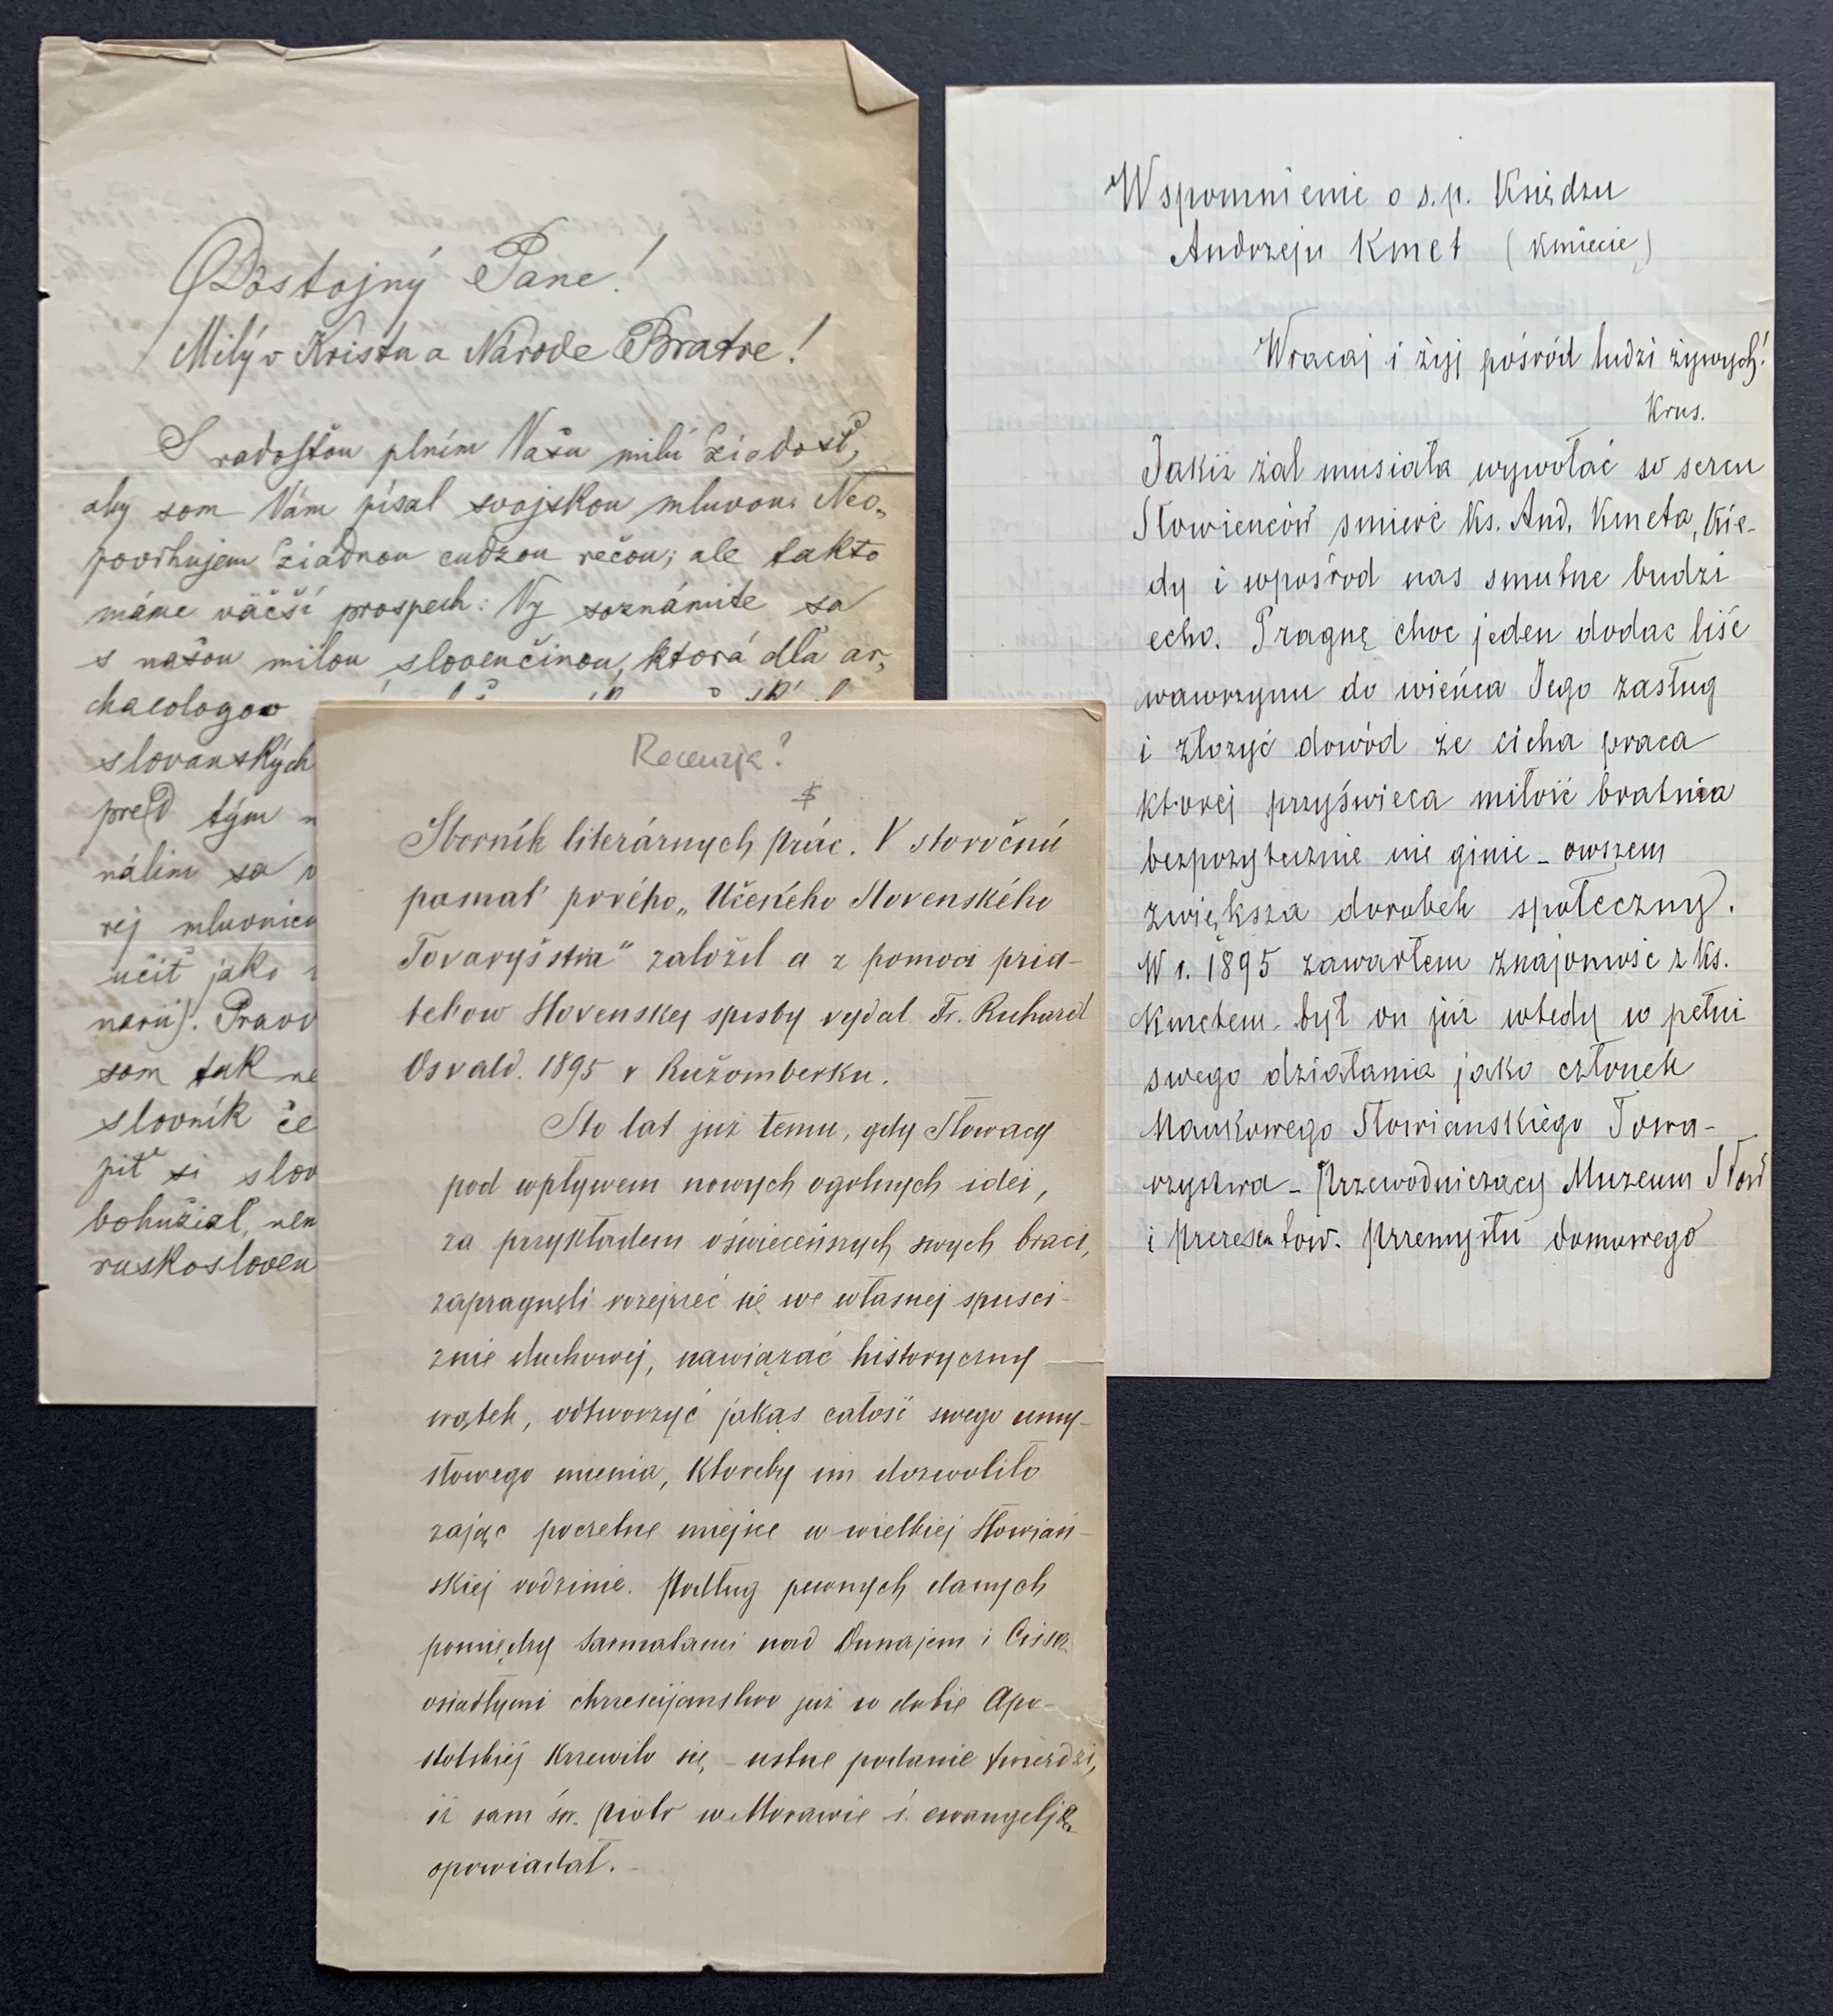 Dôstojný Pane!
Milý v Krista a Národe Bratre!
S radosťou plním Vašu milú žiadosť,
aby som Vám písal svojskou mluvou. Neo„
povrhujem žiadnou cudzou rečou; ale takto
máme väčší prospech: Vy soznámite sa
s našou milou slovenčinou, ktorá dľa ar„
chaeologov
slovanských
pred tým
nálim sa
rej mluvnicu
učiť jako
narii). Pravd
som tak ne
slovník če
piť si slov
bohužiaľ, nem
ruskosloven
Wspomnienie o s.p. Księdzu
Andrzeju Kmet (Kmiecie)
Wracaj i żyj pośród ludzi żywych!
Krus.
Jakiż żal musiała wywołać w sercu
Słowieńców smierć Ks. And. Kmeta, Kie-
dy i wpośrod nas smutne budzi
echo. Pragnę choc jeden dodac liśc
wawrzynu do wieńca Jego zasług
i złozyć dowód że cicha praca
ktorej przyświeca miłość bratnia
bezpozytecznie nie ginie - owszem
zwięksża dorobek społeczny.
W r. 1895 zawarłem znajomośc z Ks.
Kmetem - był on już wtedy w pełni
swego działania jako członek
Naukowego Słowianskiego Towa-
rzystwa - Przewodniczacy Muzeum Słow
i Prezes tow. Przemysłu domowego
Recenzje?
Sborník literárnych prác. V storočnú
pamať prvého „Učeného Slovenského
Tovaryšstva" založil a z pomoci pria-
telow Slovenskej spisby vydal Fr. Richard
Osvald. 1895 v Ružomberku.
Sto lat już temu, gdy Słowacy
pod wpływem nowych ogolnych idei,
za przykładem oświeceńszych swych braci,
zapragnęli rozejrzeć się we własnej spusci-
znie duchowej, nawiązać historyczny
wątek, odtworzyć jakąs całość swego umy-
słowego mienia, ktoreby im dozwoliło
zając poczetne miejsce w wielkiej Słowiań-
skiej rodzinie. Podług pewnych danych
pomiędzy Sarmatami nad Dunajem i Cissą
osiadłymi chrzescijanstwo już w dobie Apo-
stolskiej krzewiło się, - ustne podanie twierdzi,
iż sam św. Piotr w Morawie ś. ewangelję
opowiadał. -